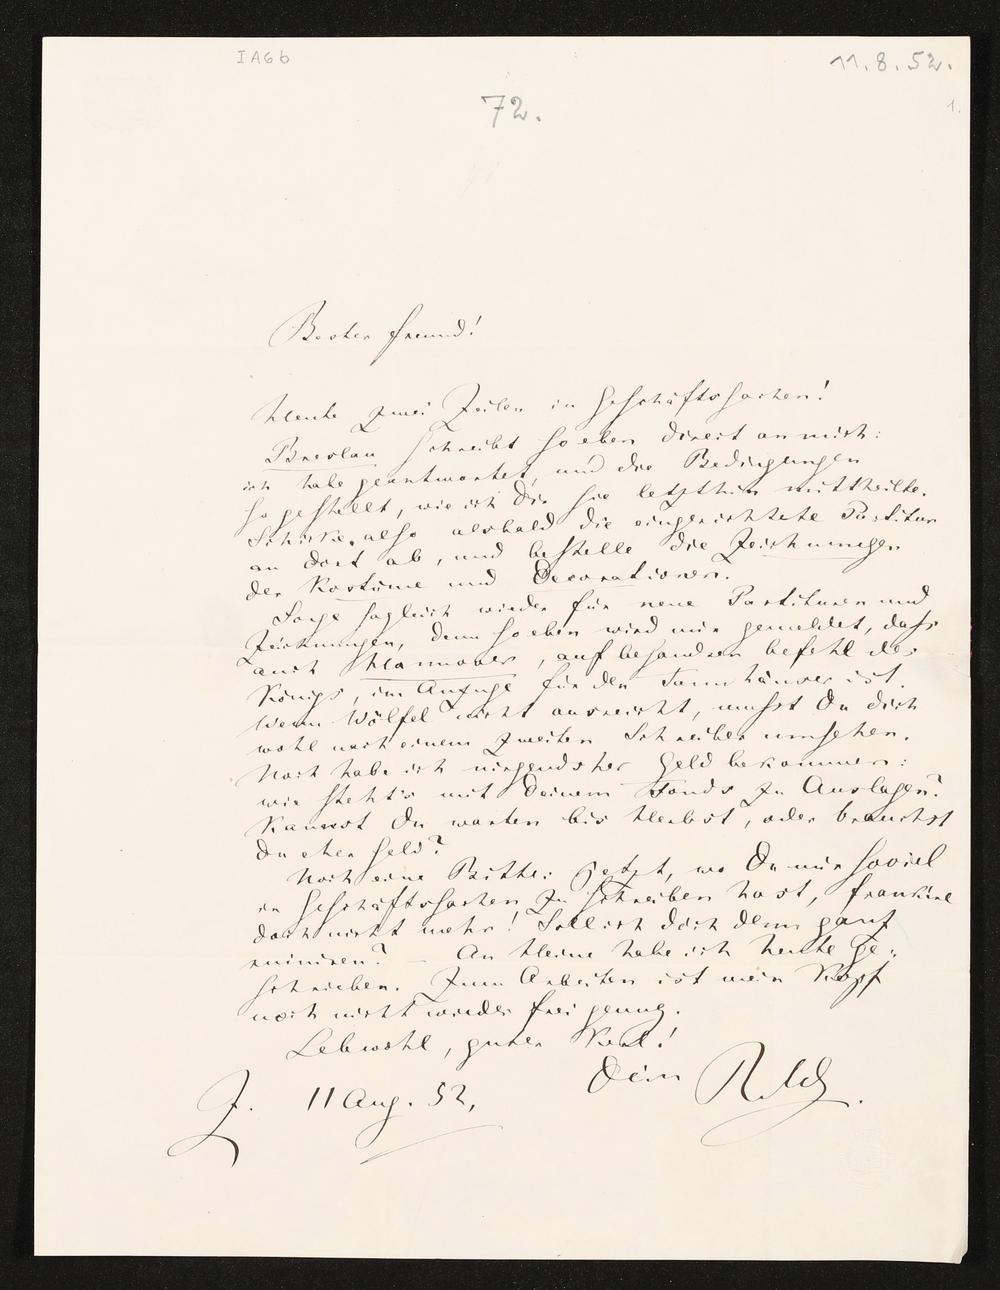 IAGb
11.8.52.
1.
72.
Bester Freund!
Heute zwei Zeilen in Geschäftssachen!
Breslau schreibt so eben direct an mich:
ich habe geantwortet, und die Bedingungen
so gestellt, wie ich Dir sie letzthin mittheilte.
Schicke also alsbald die eingerichtete Partitur
an dort ab, und bestelle die Zeichnungen
der Kostüme und Decorationen.
Sorge sogleich wieder für neue Partituren und
Zeichnungen, denn so eben wird mir gemeldet, daß
auch Hannover, auf besondren befehl des
Königs, im Anzuge für den Tannhäuser ist.
Wenn Wölfel nicht ausreicht, mußt Du dich
wohl nach einem zweiten Schreiber umsehen.
Noch habe ich nirgendsher Geld bekommen:
wie steht's mit Deinem Fonds zu Auslagen?
Kannst Du warten bis Herbst, oder brauchst
Du eher Geld?
Noch eine Bitte: jetzt, wo Du mir soviel
in Geschäftssachen zu schreiben hast, frankire
doch nicht mehr! Soll ich dich denn ganz
ruiniren? – An Kleine habe ich heute ge-
schrieben. Zum Arbeiten ist mein Kopf
noch nicht wieder frei genug.
Lebwohl, guter Kerl!
Dein R.W.
Z. 11 Aug. 52.